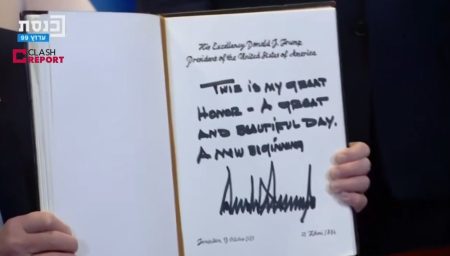 כנסת
ערוץ 99
CLASH
REPORT
His Excellency Donald J. Trump
President of the United States of America
THIS IS MY GREAT
HONOR - A GREAT
AND BEAUTIFUL DAY.
A NEW BIGINNING
Jerusalem, 13 October 2025